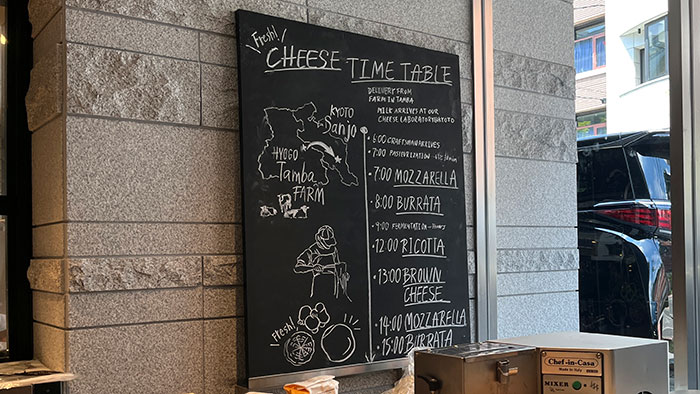 Fresh!
CHEESE TIME TABLE
DELIVERY FROM
FARM IN TAMBA
MILK ARRIVES AT OUR
CHEESE LABORATORY
KYOTO
Sanjo
HYOGO
Tamba
FARM
6:00 CRAFTSMAN ARRIVES
7:00 PASTEURIZATION
7:00 MOZZARELLA
8:00 BURRATA
9:00 FERMENTATION
12:00 RICOTTA
13:00 BROWN
CHEESE
14:00 MOZZARELLA
15:00 BURRATA
Fresh!
Chef-in-Casa
Made in Italy
MIXER